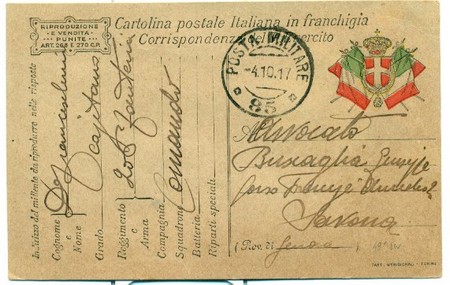 RIPRODUZIONE
E VENDITA
PUNITE
ART. 268 E 270 C.P.
Cartolina postale Italiana in franchigia
Corrispondenza del R. Esercito
POSTA MILITARE
-4.10.17
85
Indirizzo del mittente da riprodurre nelle risposte
Cognome
e
Nome
Gaetano
Grado
Reggimento
e
Arma
Fanteria
Compagnia
Squadrone
Batteria
Comando
Riparti speciali
Avvocato
Buscaglia
Corso
Savona
(Prov. di Genova)